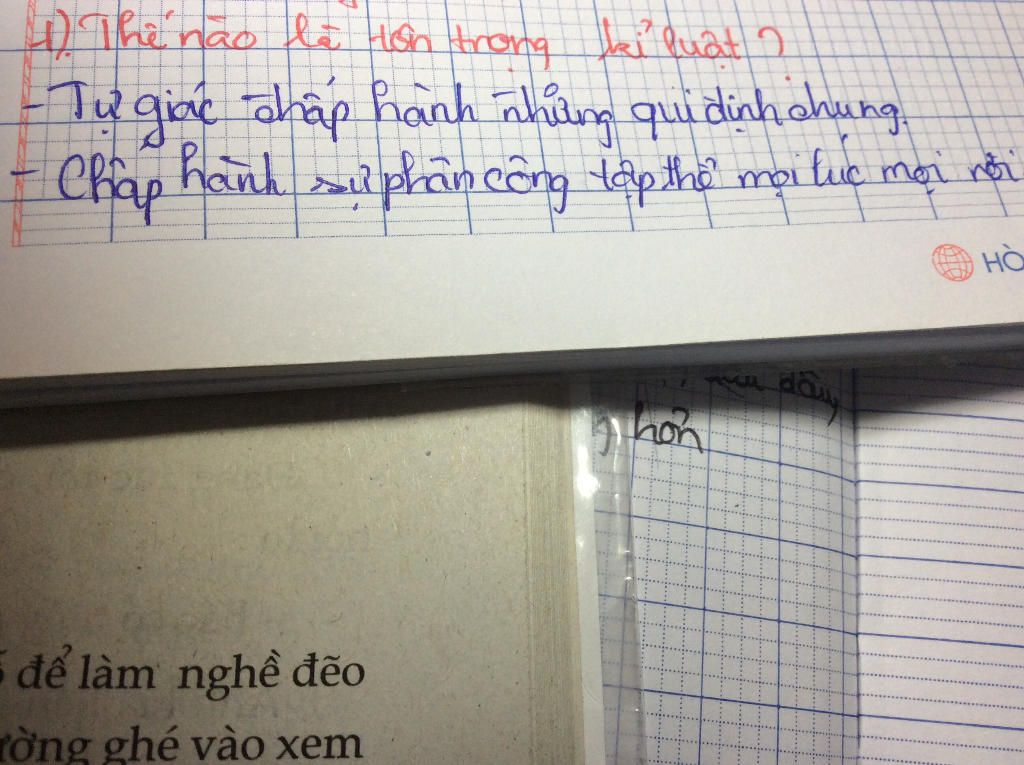 1). Thế nào là tôn trọng kỉ luật?
- Tự giác chấp hành những qui định chung.
- Chấp hành sự phân công tập thể mọi lúc mọi nơi
HÒ
dây
hơn
để làm nghề đẽo
ường ghé vào xem